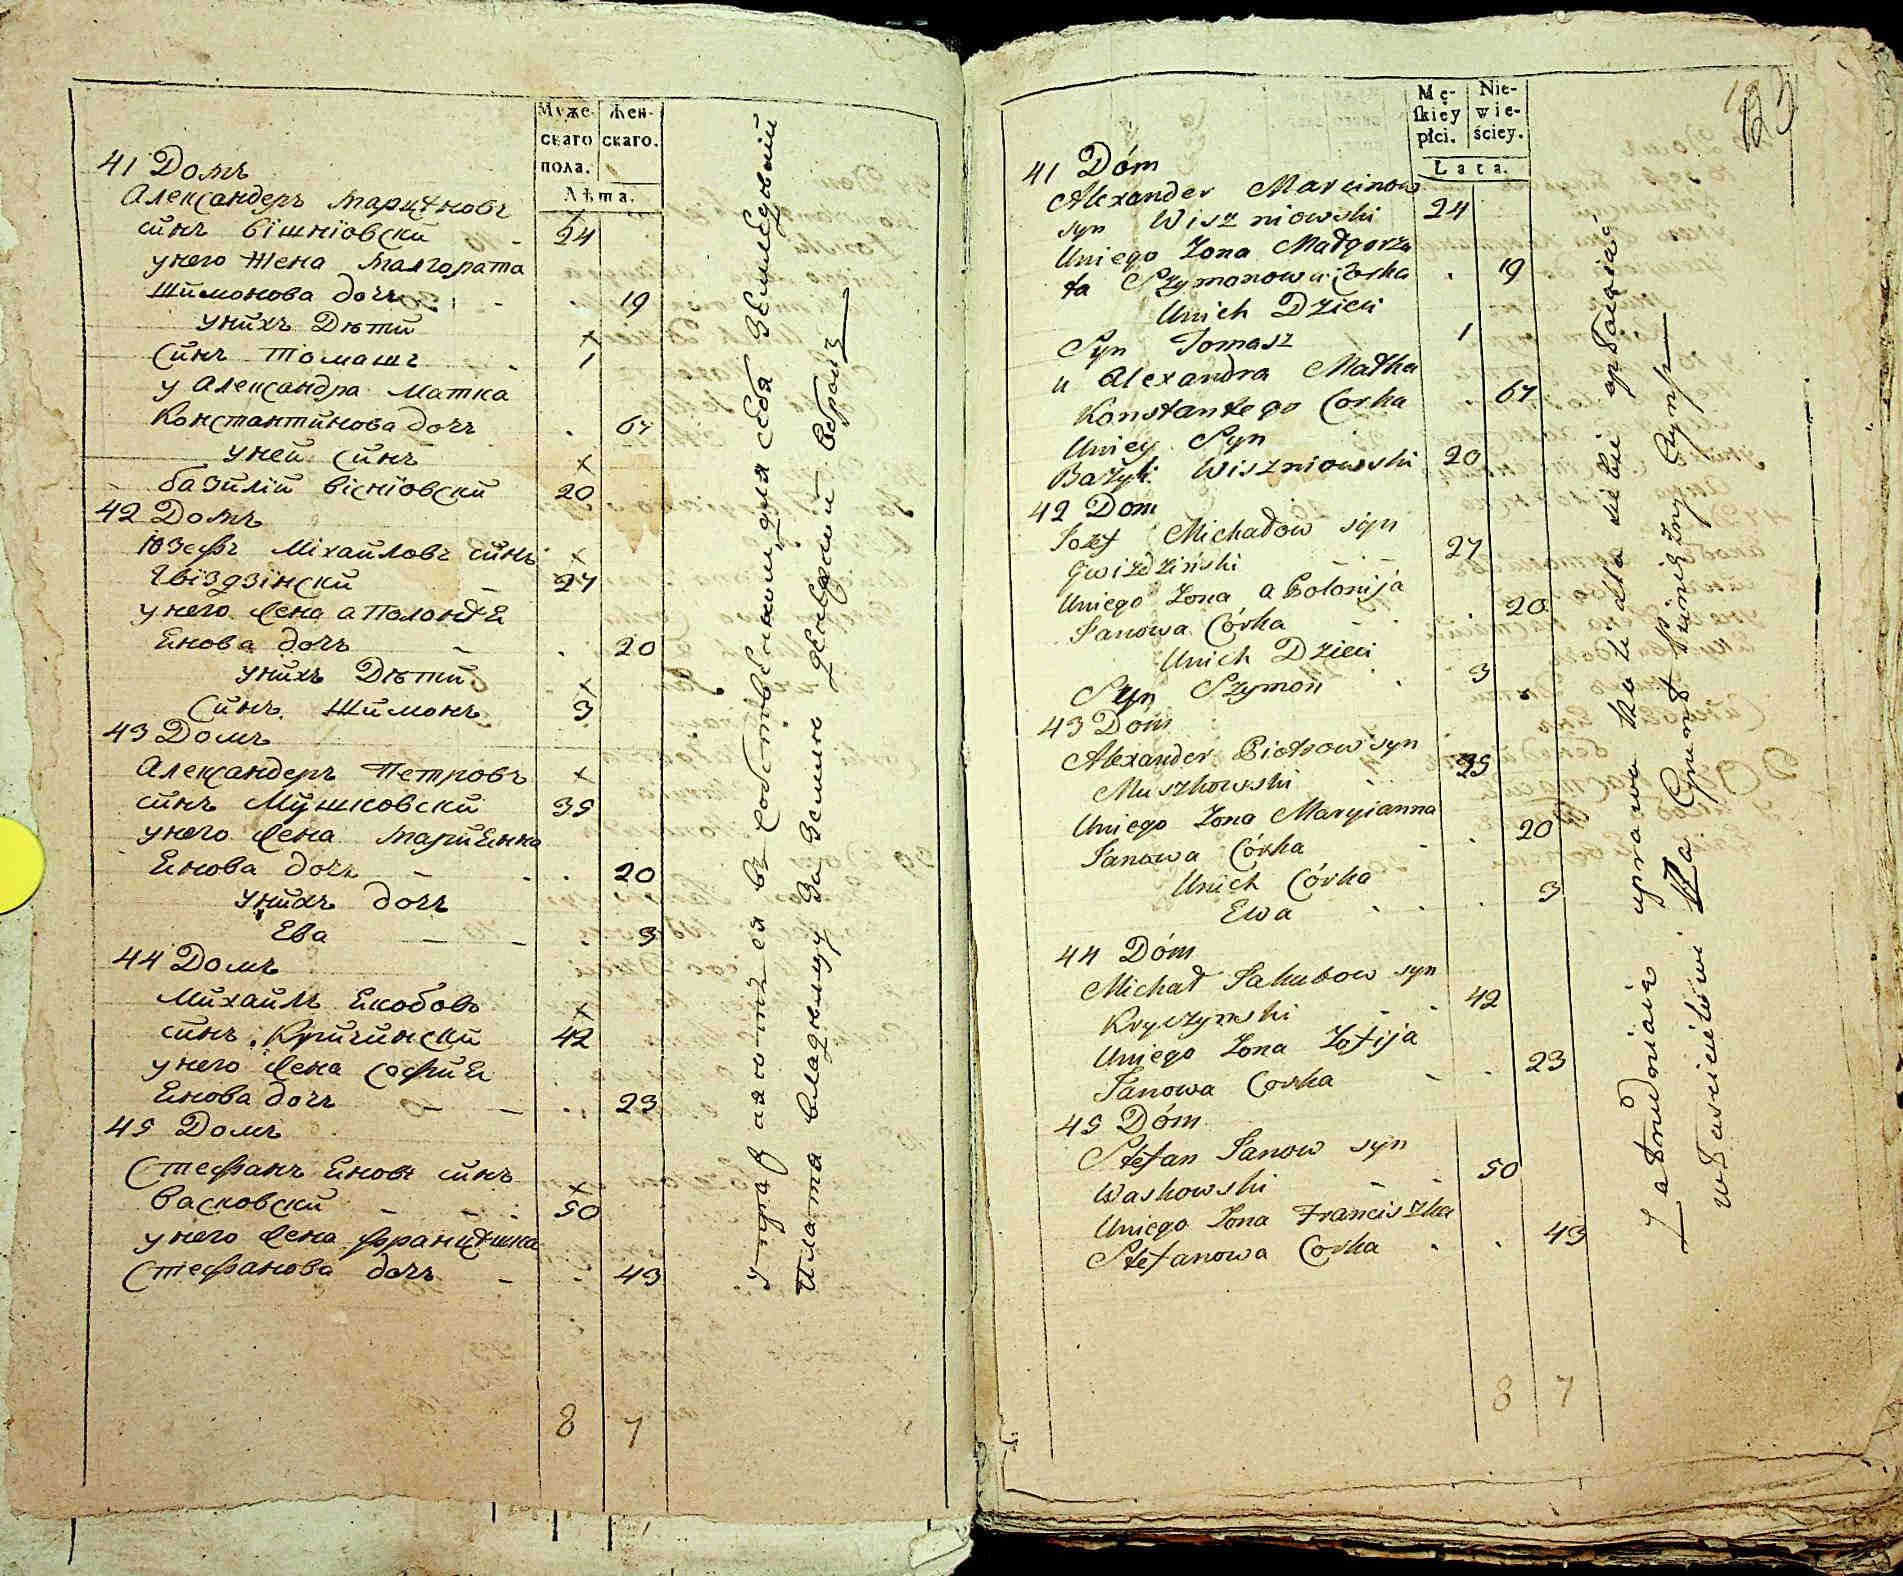 Муже-
скаго
пола.
Жен-
скаго.
Лѣта.
41 Домъ
Александеръ Марцѣновъ
синъ Вішніовски - 24
унего Жена Малгората
Шимонова дочъ - . 19
унихъ Дѣти
Синъ Томашъ . 1
у Александра Матка
Константинова дочъ . 67
уней синъ
Базилій Вісніовски 20
42 Домъ
Юзефъ Міхайловъ синъ
Гвіздзінски - 27
унего жена аполонѣя
Енова дочъ - . 20
унихъ Дѣти
Синъ Шимонъ 3
43 Домъ
Александеръ Петровъ
синъ Мушковски 35
унего жена Мариенна
Енова дочъ - . . 20
унихъ дочъ
Ева - - . 3
44 Домъ
Михаилъ Екобовъ
синъ Кричински 42
унего жена Софие
Енова дочъ - - . 23
45 Домъ
Стефанъ Еновъ синъ
Васковски - - . 50
унего жена Францѣшка
Стефанова дочъ - . 43
8 7
Упражняются въ собственномъ для себя земледѣліи
Плата владѣльцу за землю
123
Mę-
skiey
płci.
Nie-
wie-
ściey.
Lata.
41 Dóm
Alexander Marcinow
syn Wiszniowski 24
Uniego Zona Małgorza
ta Szymonowa Corka . 19
Unich Dzieci
Syn Tomasz 1
u Alexandra Matka
Konstantego Corka . 67
Uniey Syn
Bazyli Wiszniowski 20
42 Dom
Jozef Michałow syn
Gwizdziński - - 27
Uniego Zona aPolonija
Janowa Córka - . . 20
Unich Dzieci
Syn Szymon . 3
43 Dóm
Alexander Piotrow syn
Muszkowski 35
Uniego Zona Maryianna
Janowa Córka - . 20
Unich Córka
Ewa . . . 3
44 Dóm
Michał Jakubow syn
Kryczynski - . 42
Uniego Zona Zofija
Janowa Corka - . 23
45 Dóm
Stefan Janow syn
Waskowski - - 50
Uniego Zona Franciszka
Stefanowa Corka . . 43
8 7
Zatrudniaią uprawą Roli dla siebie opłacaiąc
właścicielowi Za Grunt Pinięzny Czynsz